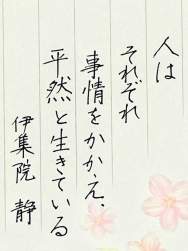 人は
それぞれ
事情をかかえ、
平然と生きている
伊集院 静